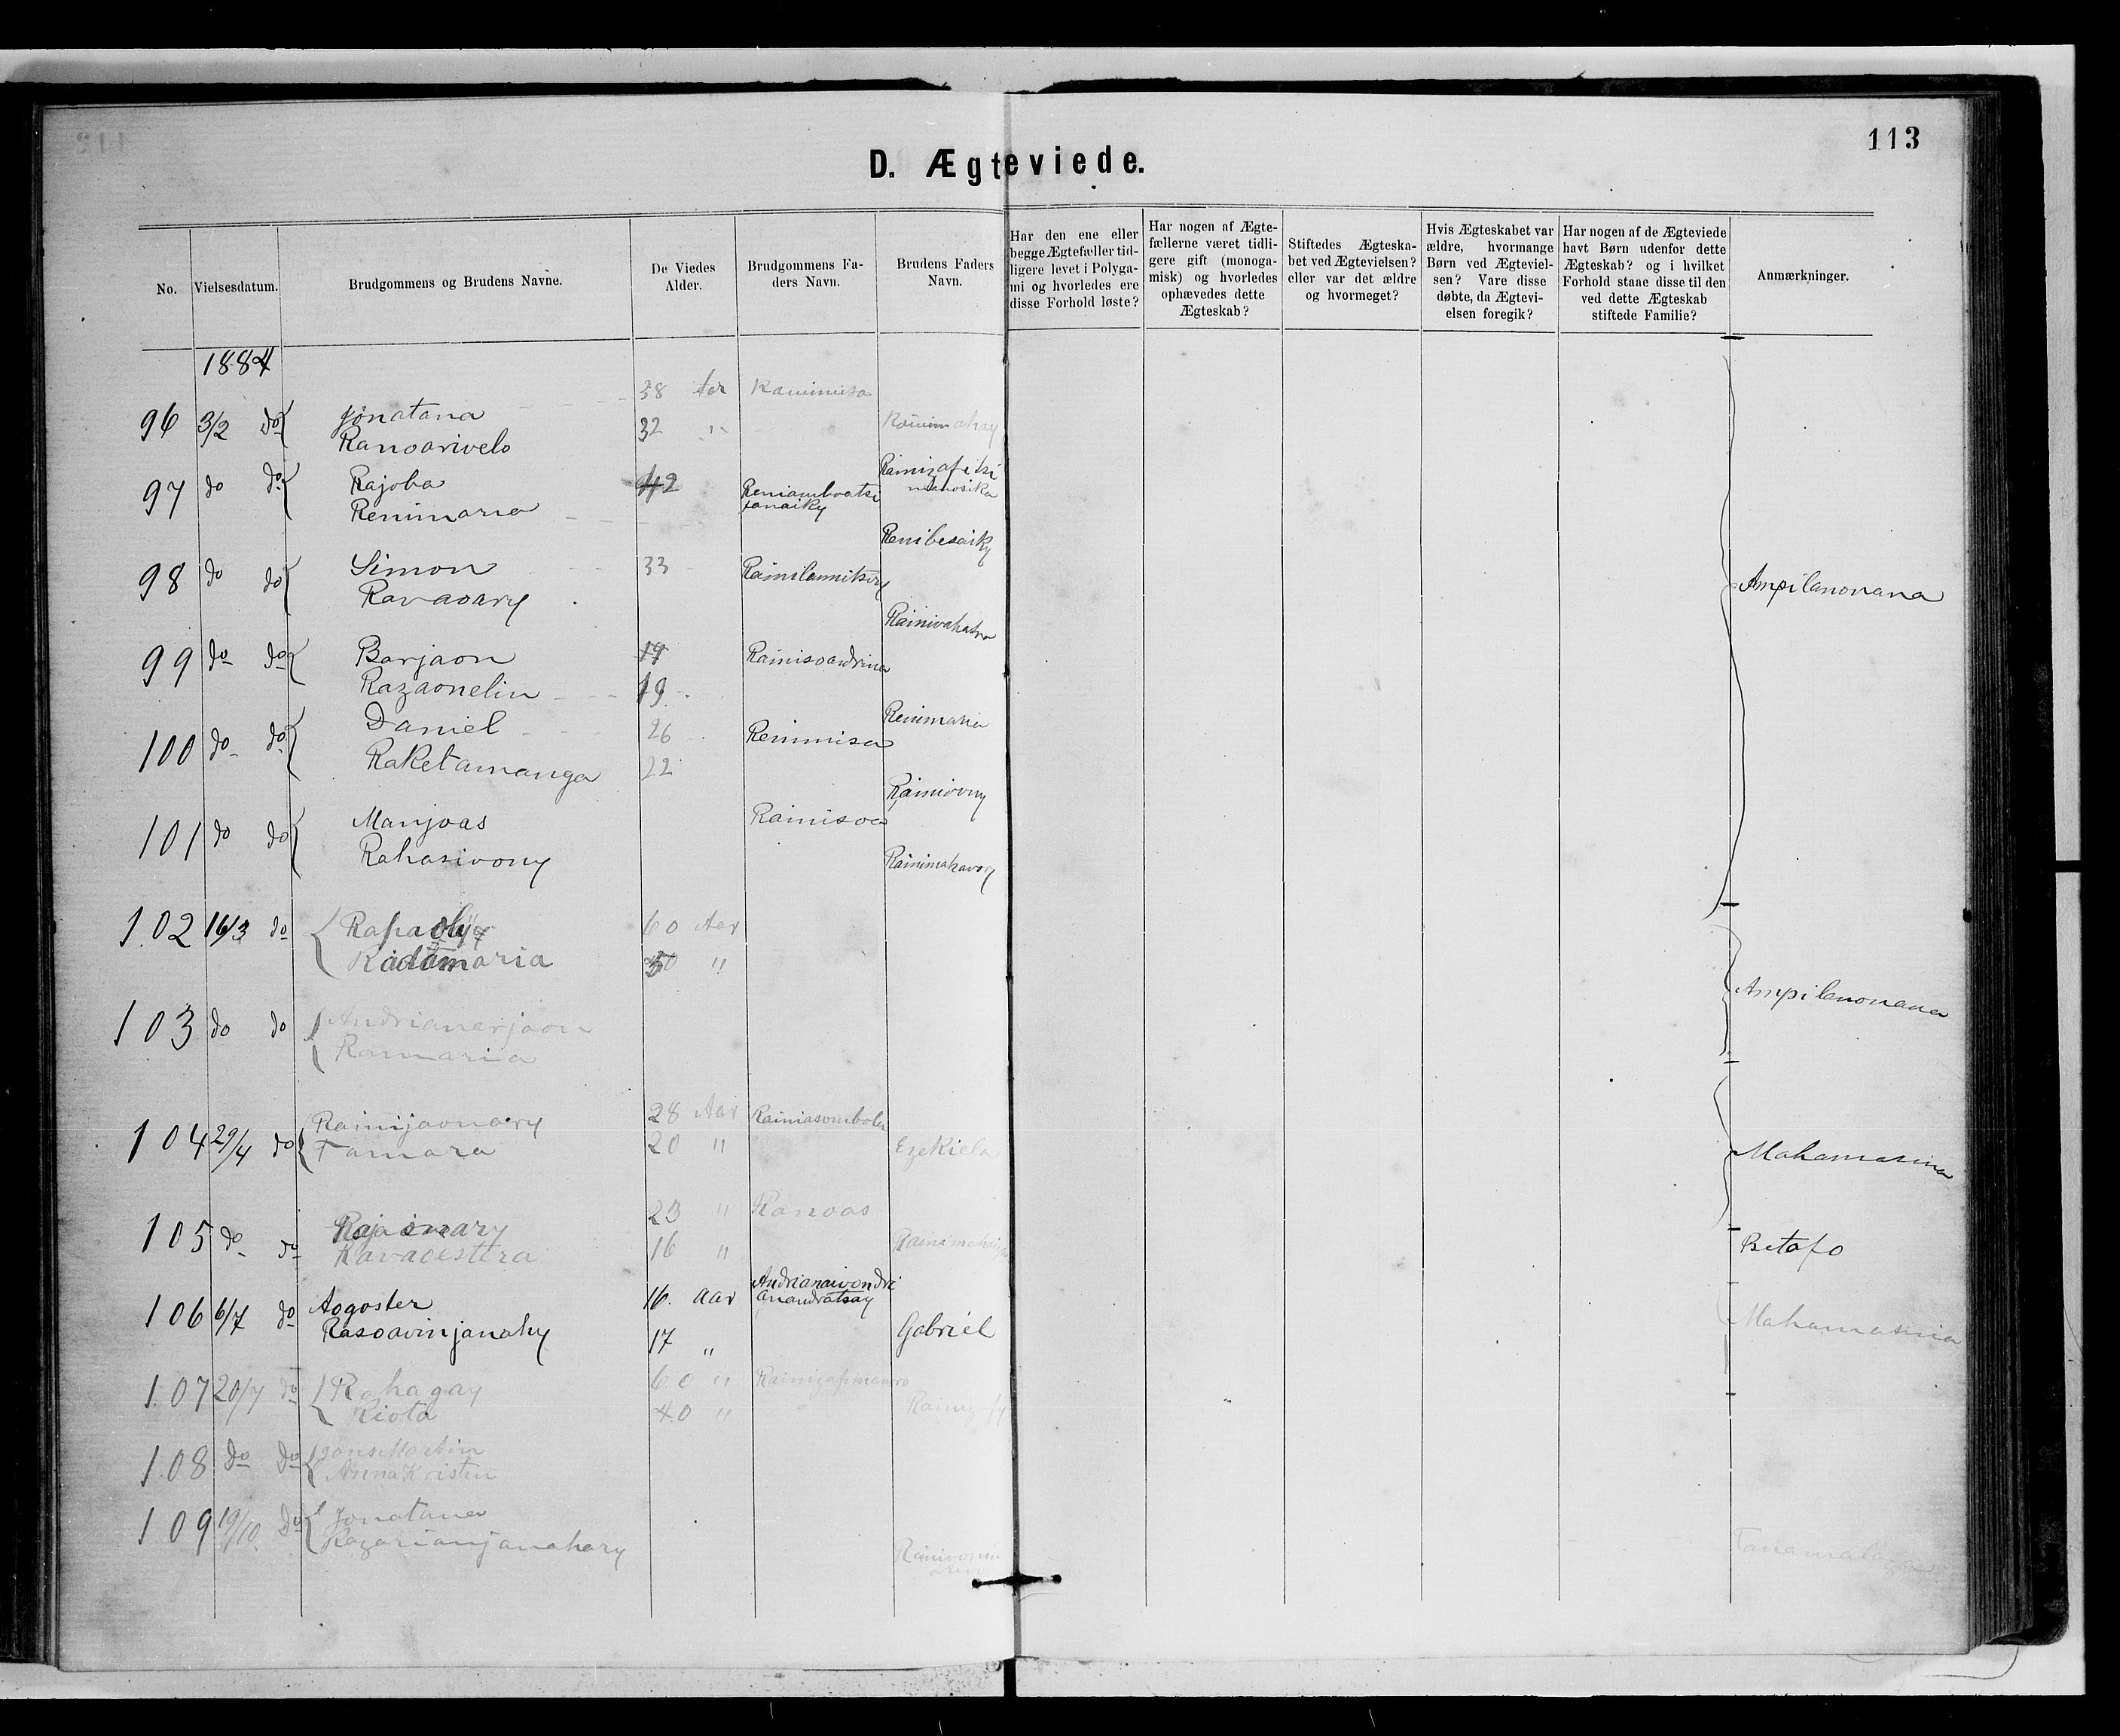 113
D. Ægteviede.
No. Vielsesdatum. Brudgommens og Brudens Navne. De Viedes Alder. Brudgommens Faders Navn. Brudens Faders Navn. Har den ene eller begge Ægtefæller tidligere levet i Polygami og hvorledes ere disse Forhold løste? Har nogen af Ægtefællerne været tidligere gift (monogamisk) og hvorledes ophævedes dette Ægteskab? Stiftedes Ægteskabet ved Ægtevielsen? eller var det ældre og hvormeget? Hvis Ægteskabet var ældre, hvormange Børn ved Ægtevielsen? Vare disse døbte, da Ægtevielsen foregik? Har nogen af de Ægteviede havt Børn udenfor dette Ægteskab? og i hvilket Forhold staae disse til den ved dette Ægteskab stiftede Familie? Anmærkninger.
1884
96 3/2 do Jonatana 38 Aar Rainimisa
Ranoarivelo 32 "
97 do do Rajoba 42 Reniamboatsi
Renimaria
Renibesaiky
98 do do Simon 33 Rainilamitsery
Ravaoary Rainivahatra
Ampilanonana
99 do do Barjaon 19 Rainisoandrina
Razaonelin 19
Renimaria
100 do do Daniel 26 Renimisa
Raketamanga 22
Rainivony
101 do do Manjoas Rainisoa
Rahasivony Rainimahavory
102 16/3 do Rapaoly 60 Aar
Radamaria "
Ampilanonana
103 do do Andrianarjaon
Ranmaria
104 29/4 do Rainijaonary 28 Aar Rainiasombola
Tamara 20 " Ezekiela
Mahamasina
105 do do Rajaonary 23 " Ranoas
Ravaoestera 16 "
Betafo
106 6/7 do Aogoster 16. Aar Andrianaivondri
anandratsay
Rasoavinjanahy 17 " Gabriel
Mahamasina
107 20/7 do Rahagay 60 " Rainizafimanoro
Riota 40 "
108 do do Jons Martin
Anna Kristin
109 19/10. do Jonatana
Razarianjanahary